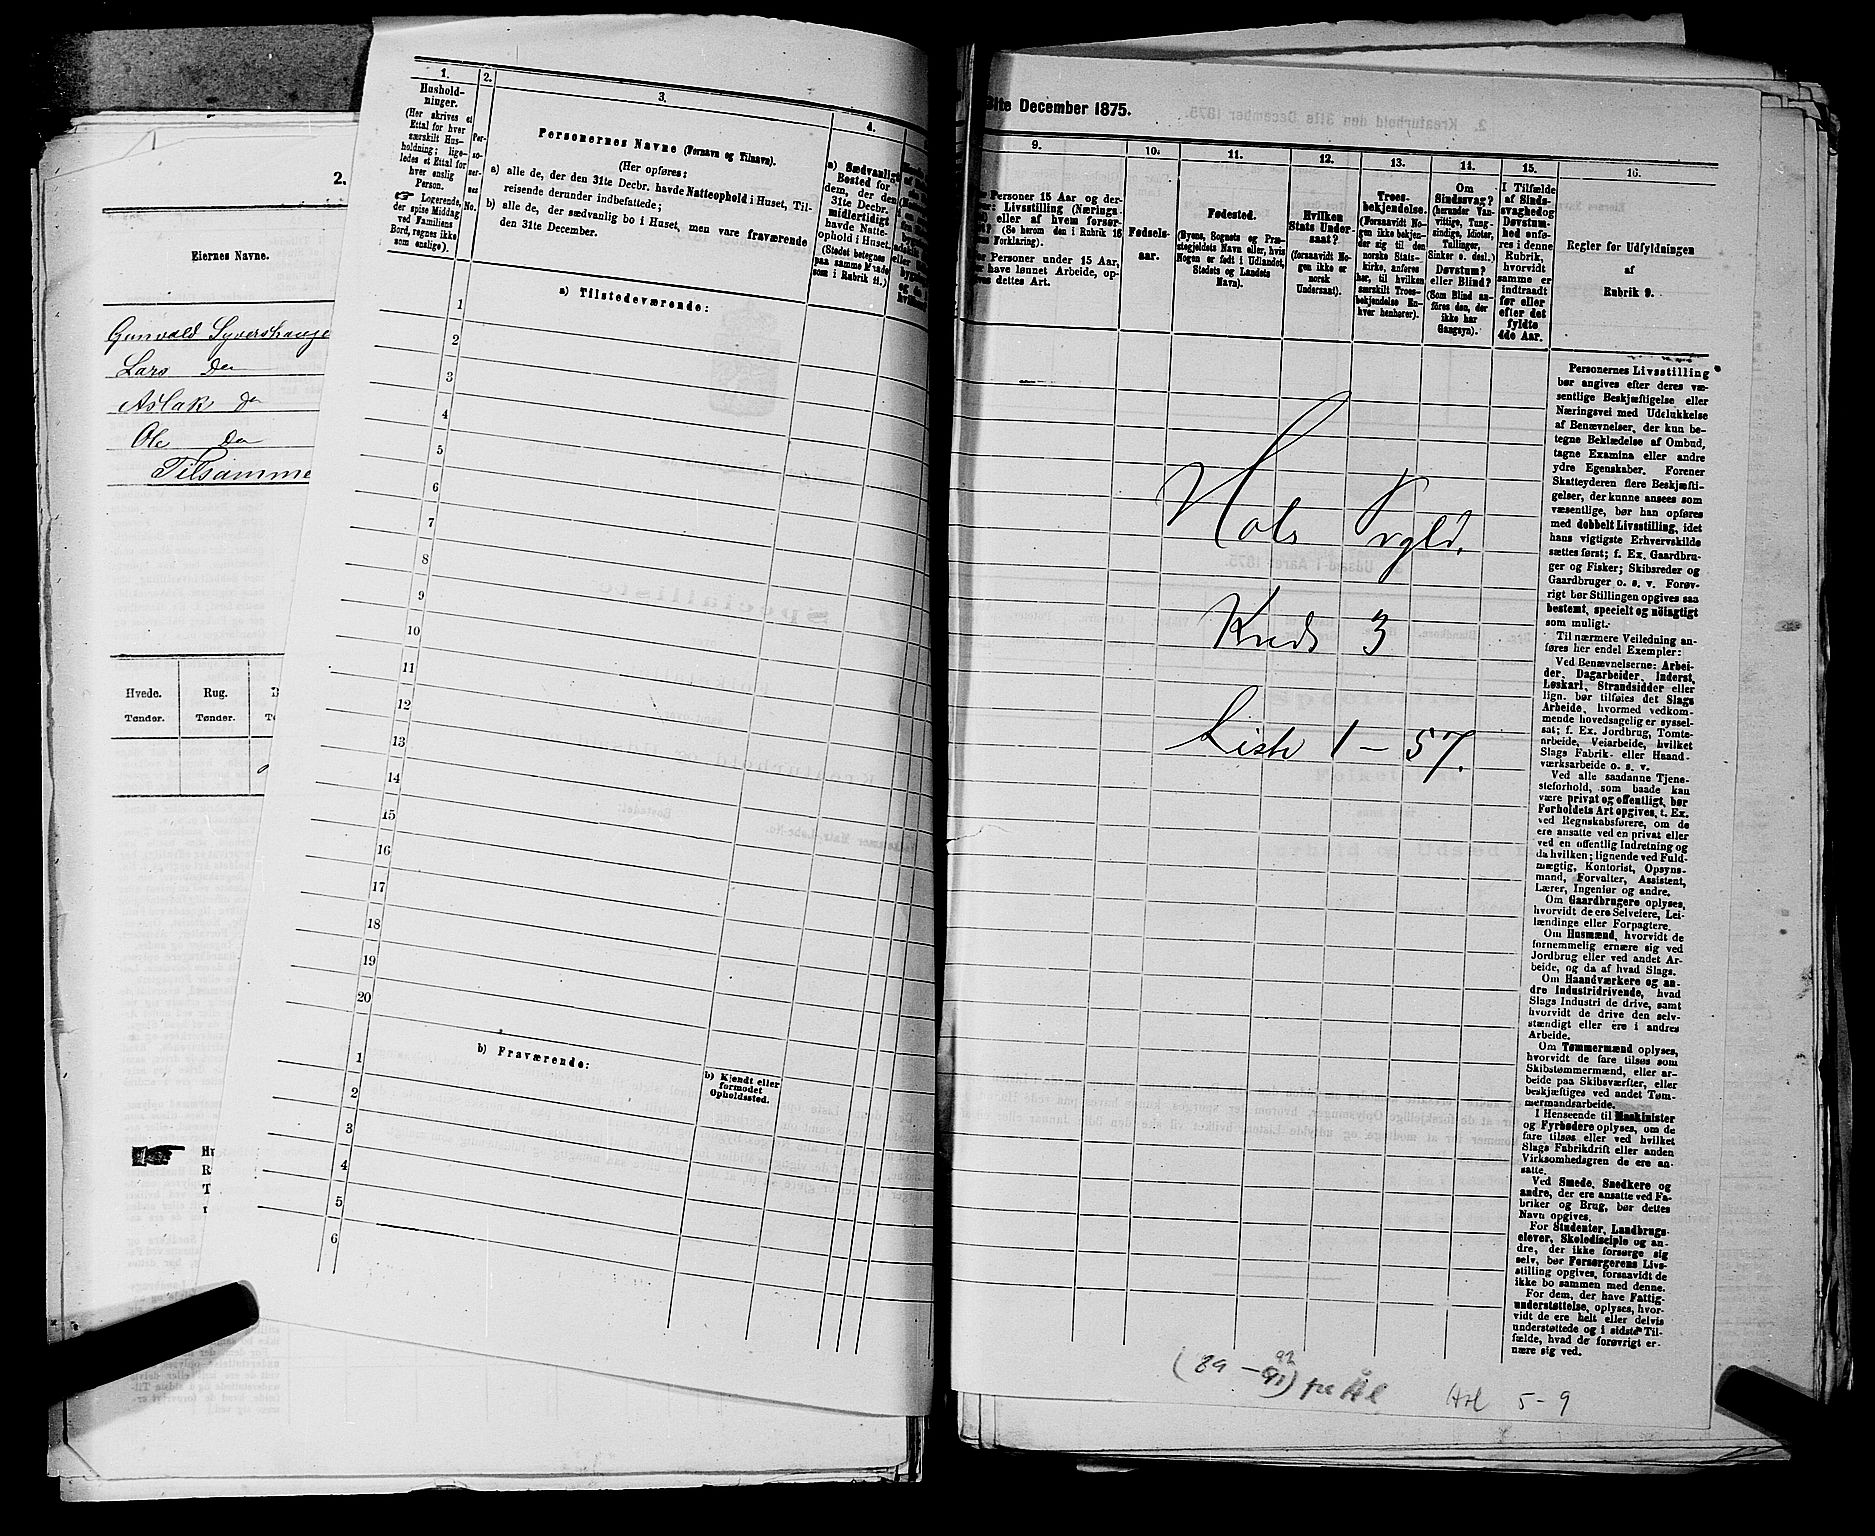 2.
Eiernes Navne.
Gunvald Syvershauge
Lars Do
Aslak do
Ole Do
Tilsamme
Hvede.
Rug.
Tønder.
Tønder.
1.
2.
3.
4.
Hushold-
ninger.
(Her skrives et
Ettal for hver
særskilt Hus-
holdning; lige-
ledes et Ettal for
hver enslig
Person.
Logerende,
der spise Middag
ved Familiens
Bord, regnes ikke
som enslige).
Per-
so-
ner-
nes
No.
Personernes Navne (Fornavn og Tilnavn).
(Her opføres:
a) alle de, der den 31te Decbr. havde Natteophold i Huset, Til-
reisende derunder indbefattede;
b) alle de, der sædvanlig bo i Huset, men vare fraværende
den 31te December.
a) Sædvanligt
Bosted for
dem, der den
31te Decbr.
midlertidigt
havde Natte-
ophold i Huset.
(Stedet betegnes
paa samme Maade
som i Rubrik 11.)
a) Tilstedeværende:
1
2
3
4
5
6
7
8
9
10
11
12
13
14
15
16
17
18
19
20
b) Fraværende:
b) Kjendt eller
formodet
Opholdssted.
1
2
3
4
5
6
31te December 1875.
9.
10.
11.
12.
13.
14.
15.
16.
Personer 15 Aar og der-
Livsstilling (Nærings-
eller af hvem forsør-
(Se herom den i Rubrik 16
Forklaring).
Personer under 15 Aar,
have lønnet Arbeide, op-
dettes Art.
Fødsels-
aar.
Fødested.
(Byens, Sognets og Præ-
stegjeldets Navn eller, hvis
Nogen er født i Udlandet,
Stedets og Landets
Navn).
Hvilken
Stats Under-
saat?
(forsaavidt No-
gen ikke er
norsk
Undersaat).
Troes-
bekjendelse.
(Forsaavidt No-
gen ikke bekjen-
der sig til den
norske Stats-
kirke, anføres
her, til hvilken
særskilt Troes-
bekjendelse En-
hver henhører).
Om
Sindssvag?
(herunder Van-
vittige, Tung-
sindige, Idioter,
Tullinger,
Sinker o. desl.)
Døvstum?
eller Blind?
(Som Blind an-
føres den, der
ikke har
Gangsyn).
I Tilfælde
af Sinds-
svaghed og
Døvstum-
hed anfø-
res i denne
Rubrik,
hvorvidt
samme er
indtraadt
før eller
efter det
fyldte
4de Aar.
Regler for Udfyldningen
af
Rubrik 9.
Hols Prgld.
Kreds 3
Liste 1 – 57.
Personernes Livsstilling
bør angives efter deres væ-
sentlige Beskjæftigelse eller
Næringsvei med Udelukkelse
af Benævnelser, der kun be-
tegne Beklædelse af Ombud,
tagne Examina eller andre
ydre Egenskaber. Forener
Skatteyderen flere Beskjæfti-
gelser, der kunne ansees som
væsentlige, bør han opføres
med dobbelt Livsstilling, idet
hans vigtigste Erhvervskilde
sættes først; f. Ex. Gaardbru-
ger og Fisker; Skibsreder og
Gaardbruger o. s. v. Forøv-
rigt bør Stillingen opgives saa
bestemt, specielt og nöiagtigt
som muligt.
Til nærmere Veiledning an-
føres her endel Exempler:
Ved Benævnelserne: Arbei-
der, Dagarbeider, Inderst,
Løskarl, Strandsidder eller
lign. bør tilføies det Slags
Arbeide, hvormed vedkom-
mende hovedsagelig er syssel-
sat; f. Ex. Jordbrug, Tomte-
arbeide, Veiarbeide, hvilket
Slags Fabrik- eller Haand-
værksarbeide o. s. v.
Ved alle saadanne Tjene-
steforhold, som baade kan
være privat og offentligt, bør
Forholdets Art opgives, t. Ex.
ved Regnskabsførere, om de
ere ansatte ved en privat eller
ved en offentlig Indretning og
da hvilken; lignende ved Fuld-
mægtig, Kontorist, Opsyns-
mand, Forvalter, Assistent,
Lærer, Ingeniør og andre.
Om Gaardbrugere oplyses,
hvorvidt de ere Selveiere, Lei-
lændinge eller Forpagtere.
Om Husmænd, hvorvidt de
fornemmelig ernære sig ved
Jordbrug eller ved andet Ar-
beide, og da af hvad Slags.
Om Haandværkere og an-
dre Industridrivende, hvad
Slags Industri de drive, samt
hvorvidt de drive den selv-
stændigt eller ere i andres
Arbeide.
Om Tømmermænd oplyses,
hvorvidt de fare tilsøs som
Skibstømmermænd, eller ar-
beide paa Skibsværfter, eller
beskjæftiges ved andet Tøm-
mermandsarbeide.
I Henseende til Maskinister
og Fyrbødere oplyses, om de
fare tilsøs eller ved hvilket
Slags Fabrikdrift eller anden
Virksomhedsgren de ere an-
satte.
Ved Smede, Snedkere og
andre, der ere ansatte ved Fa-
briker og Brug, bør dettes
Navn opgives.
For Studenter, Landbrugs-
elever, Skoledisciple og an-
dre, der ikke forsørge sig
selv, bør Forsørgerens Livs-
stilling opgives, forsaavidt de
ikke bo sammen med denne.
For dem, der have Fattig-
understøttelse, oplyses, hvor-
vidt de ere helt eller delvis
understøttede og i sidste Til-
fælde, hvad de forøvrigt er-
nære sig ved.
92
(89 – 91) fra Ål
Hol 5 - 9